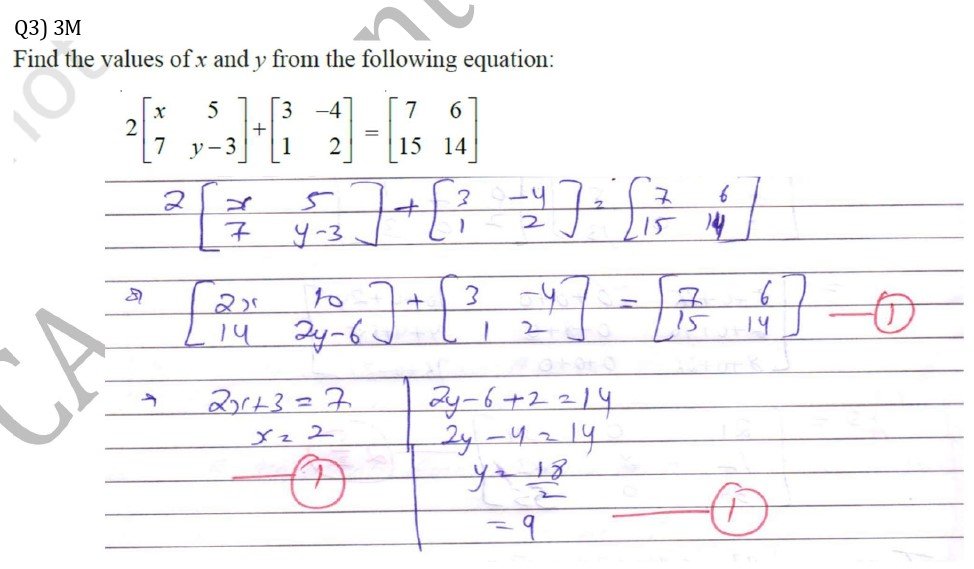 Q3) 3M
Find the values of x and y from the following equation:
2[x 5; 7 y − 3] + [3 −4; 1 2] = [7 6; 15 14]
2[x 5; 7 y-3] + [3 -4; 1 2] = [7 6; 15 14]
⇒ [2x 10; 14 2y-6] + [3 -4; 1 2] = [7 6; 15 14] — 1
→ 2x+3 = 7
x = 2
1
2y-6+2=14
2y-4=14
y = 18/2
= 9
1
CA